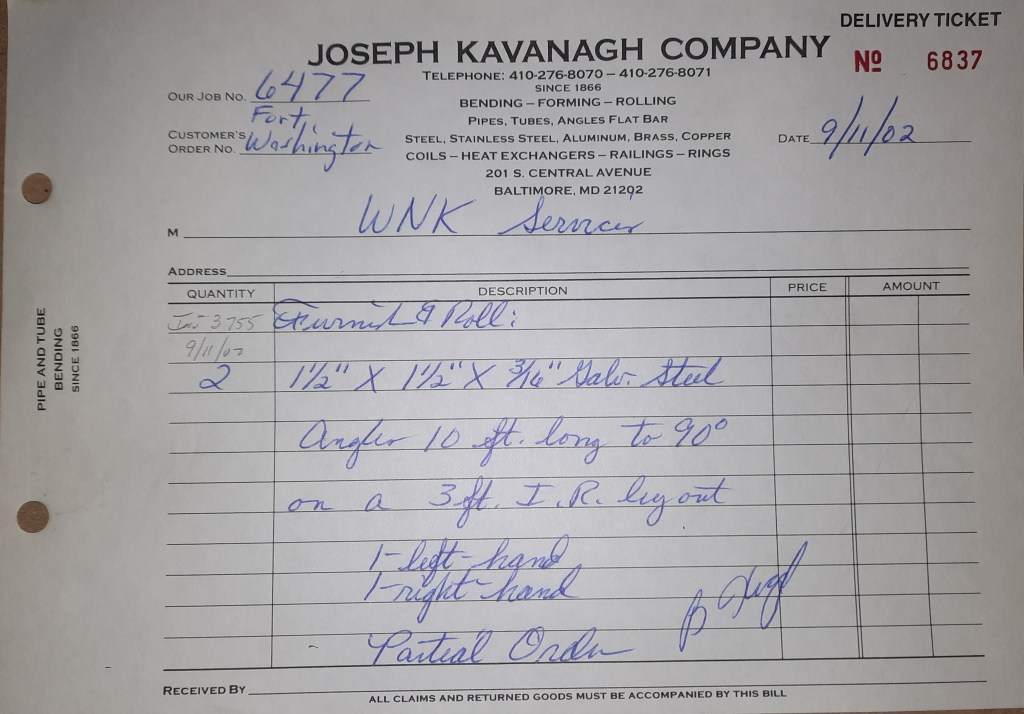 DELIVERY TICKET
JOSEPH KAVANAGH COMPANY
Nº 6837
TELEPHONE: 410-276-8070 – 410-276-8071
SINCE 1866
OUR JOB NO. 6477
BENDING – FORMING – ROLLING
PIPES, TUBES, ANGLES FLAT BAR
CUSTOMER'S ORDER NO. Fort, Washington
STEEL, STAINLESS STEEL, ALUMINUM, BRASS, COPPER
DATE 9/11/02
COILS – HEAT EXCHANGERS – RAILINGS – RINGS
201 S. CENTRAL AVENUE
BALTIMORE, MD 21202
M WNK Services
ADDRESS
QUANTITY DESCRIPTION PRICE AMOUNT
3755 Furnish & Roll:
9/11/02
2 1½" X 1½" X 3/16" Galv. Steel
Angles 10 ft. long to 90°
on a 3 ft. I.R. leg out
1-left-hand
1-right-hand
Partial Order
RECEIVED BY
ALL CLAIMS AND RETURNED GOODS MUST BE ACCOMPANIED BY THIS BILL
PIPE AND TUBE
BENDING
SINCE 1866